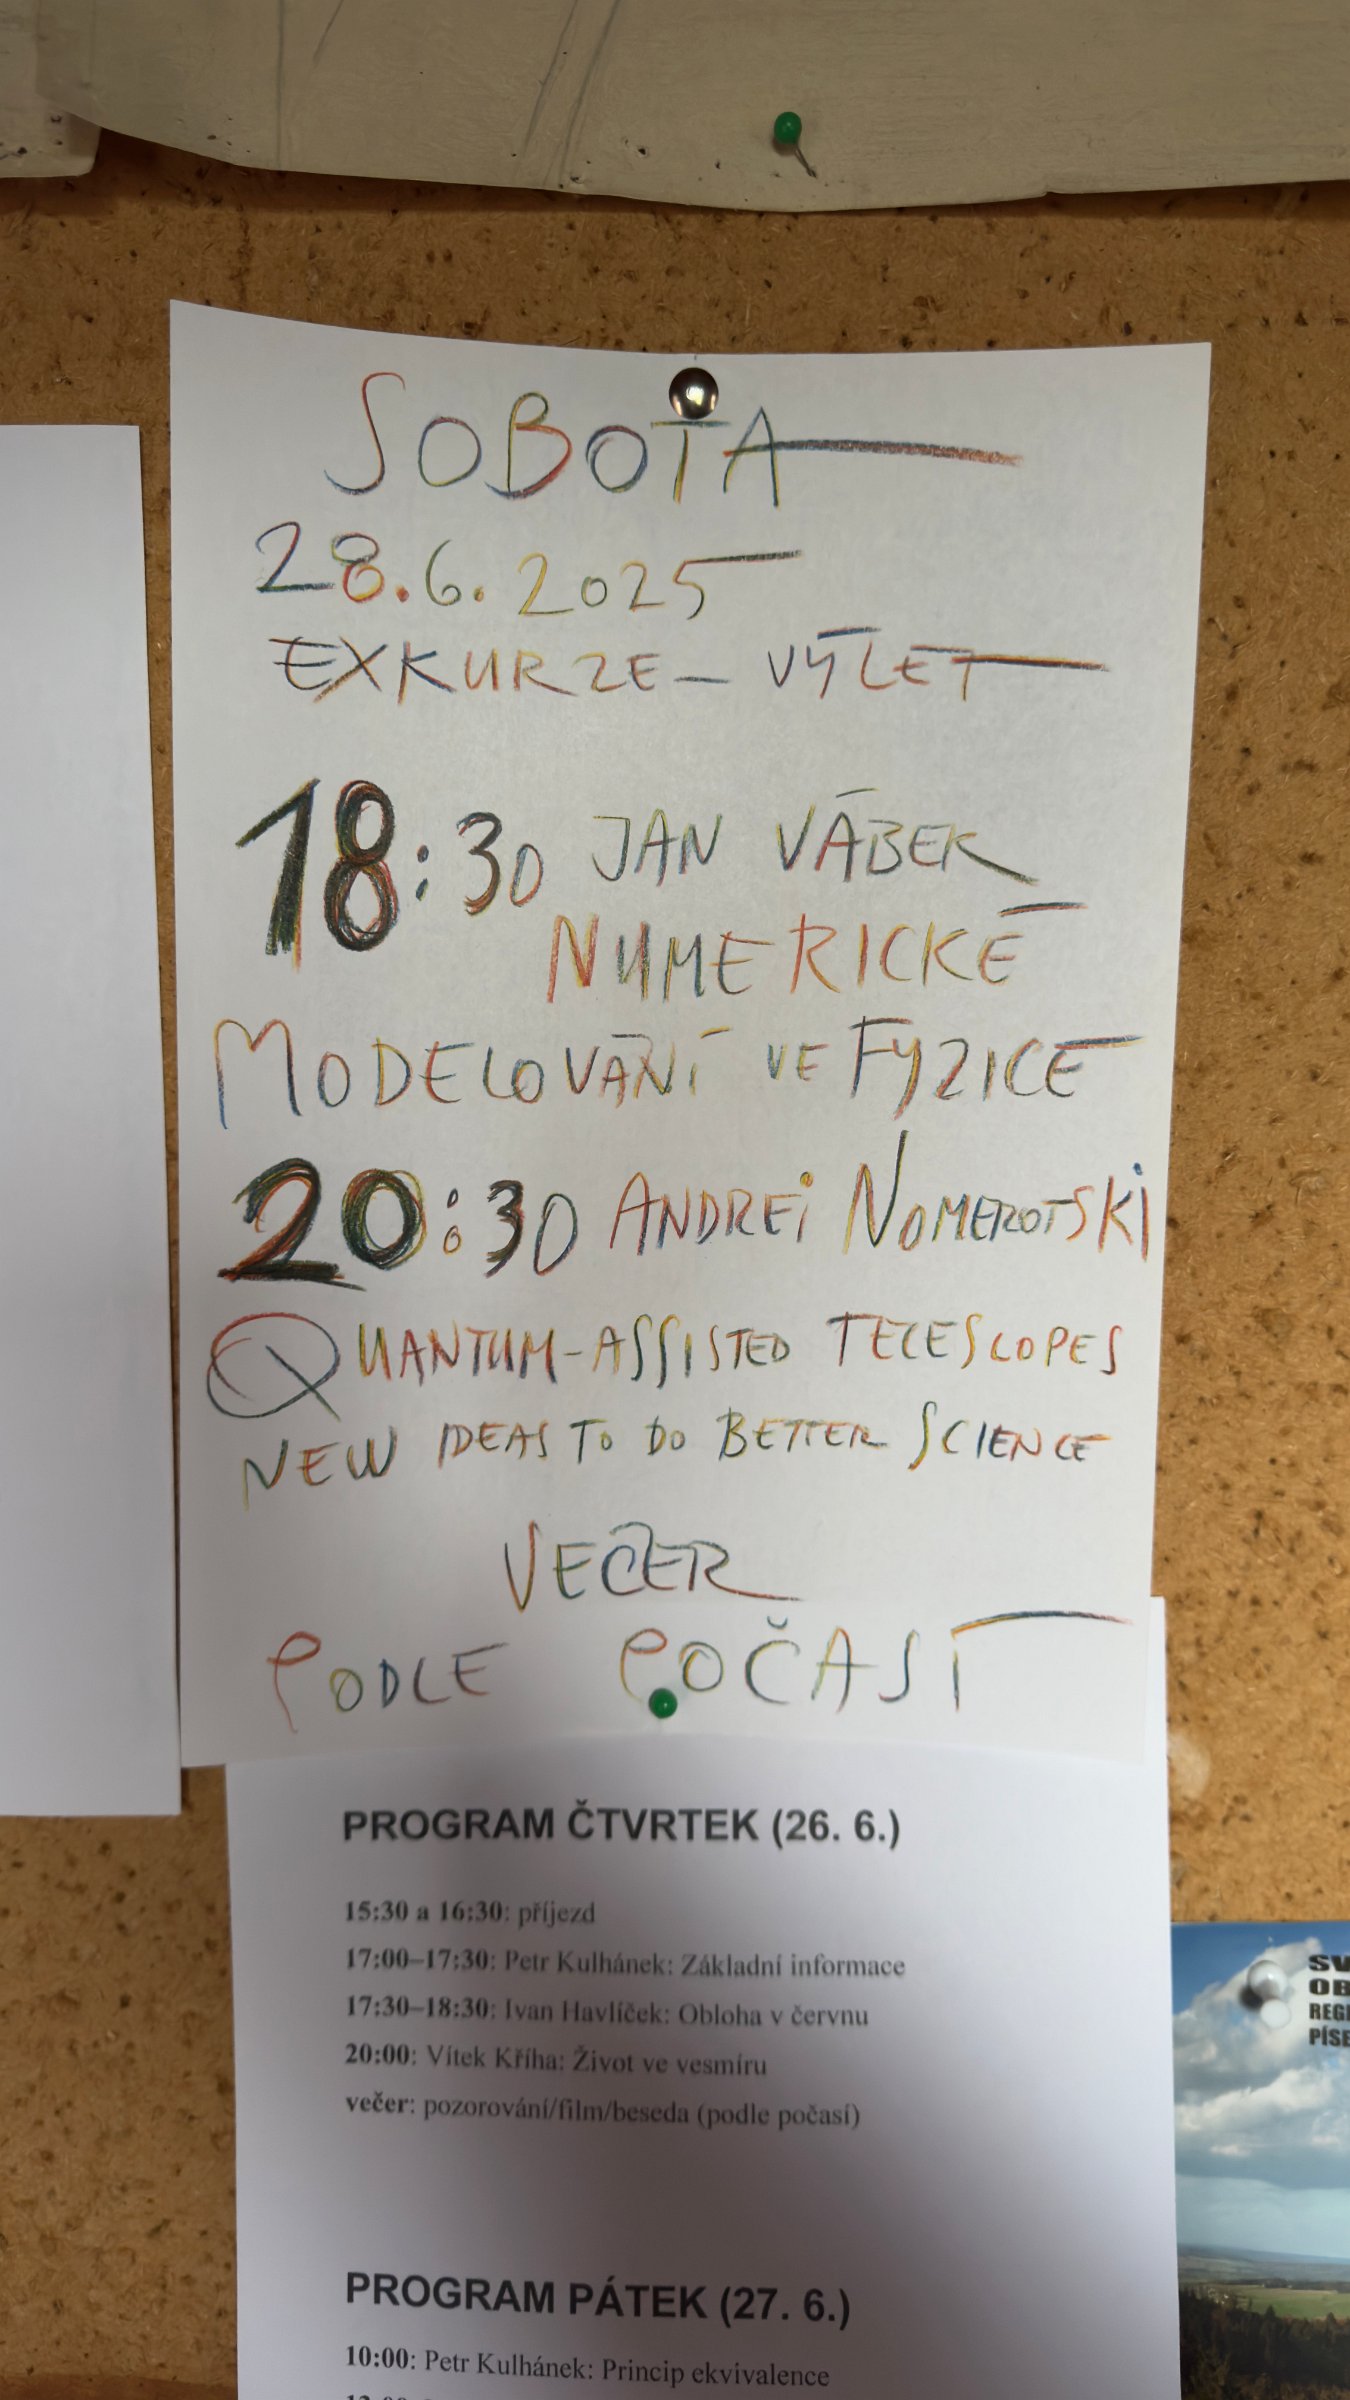 SOBOTA
28.6.2025
EXKURZE – VÝLET
18:30 JAN VÁBEK
NUMERICKÉ
MODELOVÁNÍ VE FYZICE
20:30 ANDREI NOMEROTSKI
QUANTUM-ASSISTED TELESCOPES
NEW IDEAS TO DO BETTER SCIENCE
VEČER
PODLE POČASÍ
PROGRAM ČTVRTEK (26. 6.)
15:30 a 16:30: příjezd
17:00–17:30: Petr Kulhánek: Základní informace
17:30–18:30: Ivan Havlíček: Obloha v červnu
20:00: Vítek Kříha: Život ve vesmíru
večer: pozorování/film/beseda (podle počasí)
PROGRAM PÁTEK (27. 6.)
10:00: Petr Kulhánek: Princip ekvivalence
SV
OB
REGI
PÍSE